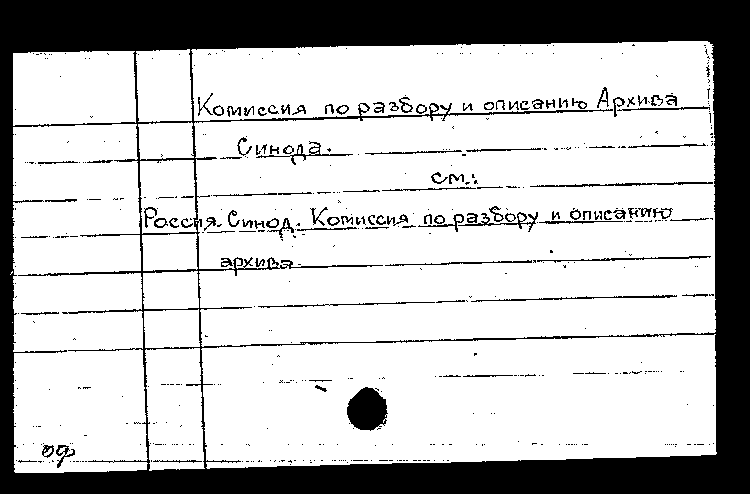 Комиссия по разбору и описанию Архива
Синода.
см.:
Россия. Синод. Комиссия по разбору и описанию
архива
оф